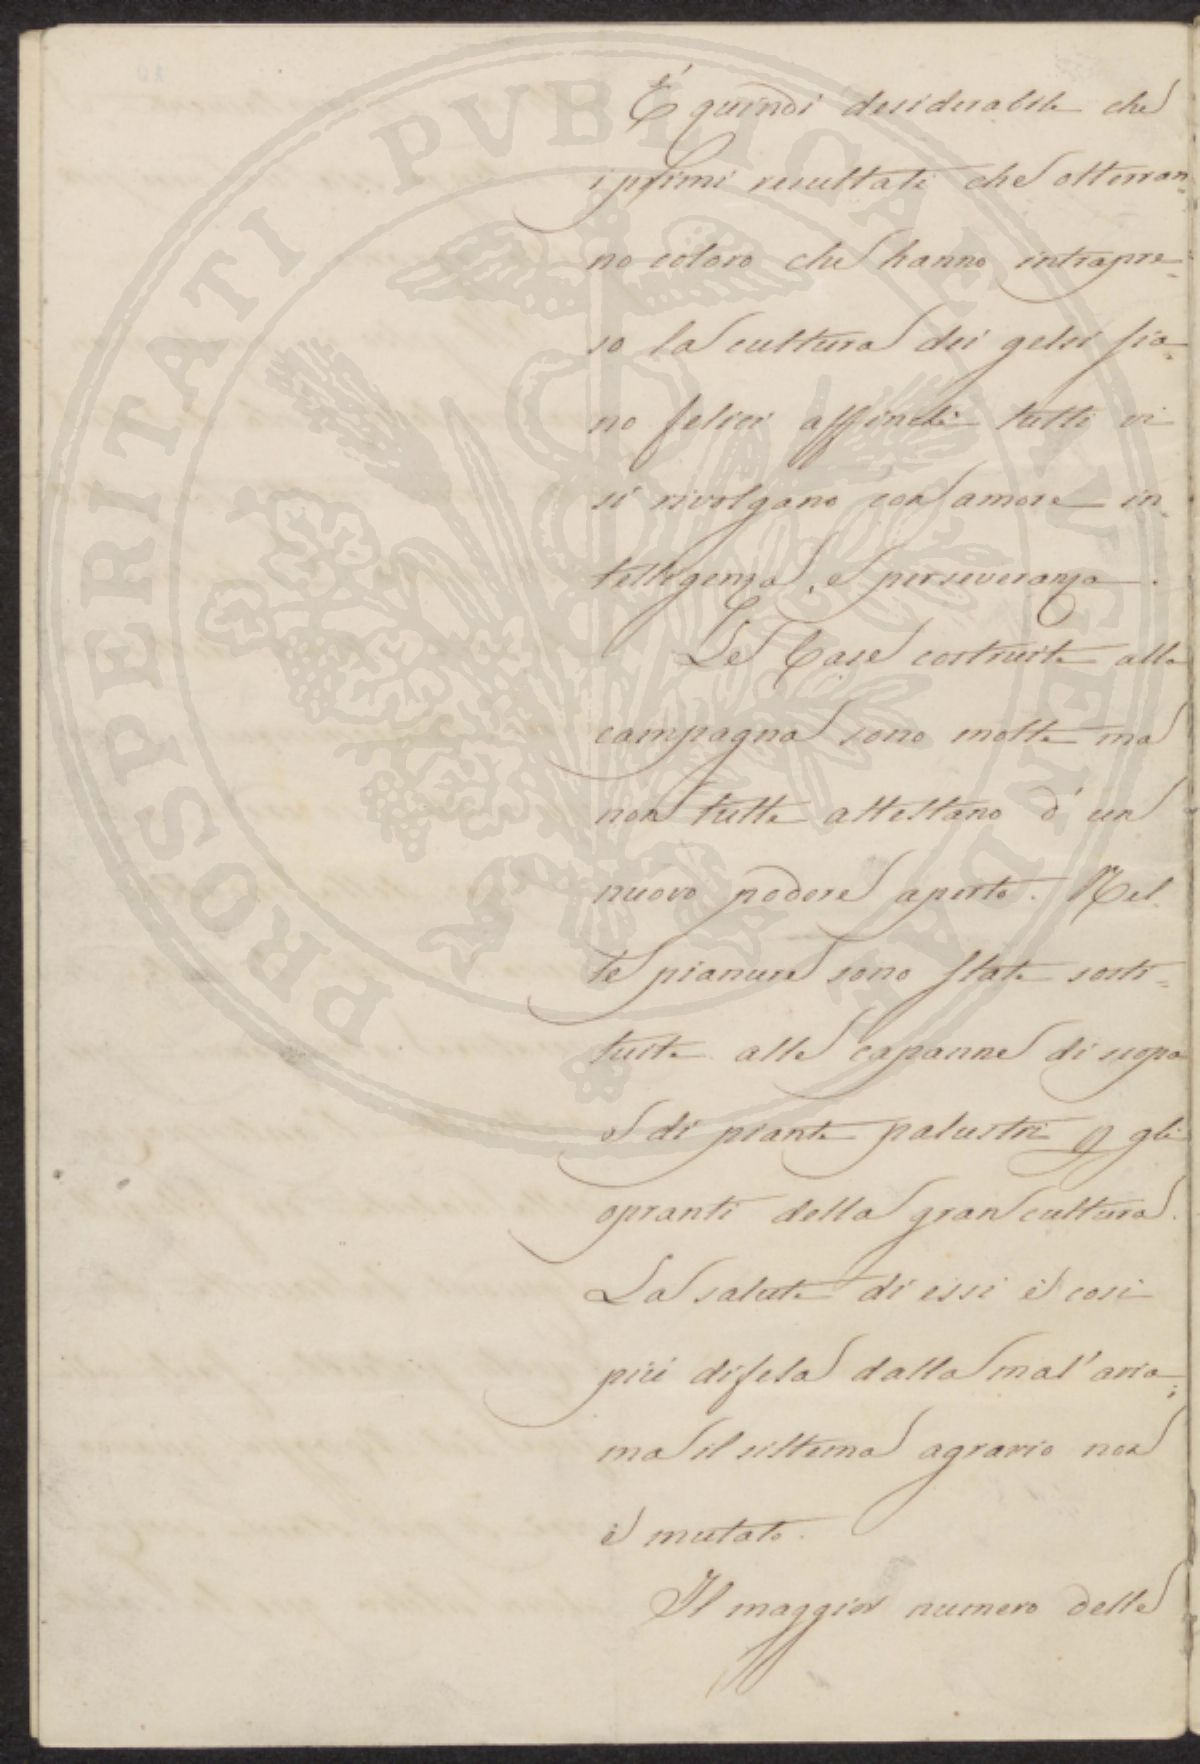 È quindi desiderabile che
i primi resultati che otterran-
no coloro che hanno intrapre-
so la cultura dei gelsi sia-
no felici affinchè tutti vi
si rivolgano con amore in-
telligenza, e perseveranza.
Le Case costruite alla
campagna sono molte ma
non tutte attestano d'un
nuovo podere aperto. Nel-
le pianure sono state sosti-
tuite alle capanne di scopa
o di piante palustri p gli
opranti della gran cultura.
La salute di essi è così
più difesa dalla mal'aria;
ma il sistema agrario non
è mutato.
Il maggior numero delle
PROSPERITATI PVBLICAE AVGENDAE